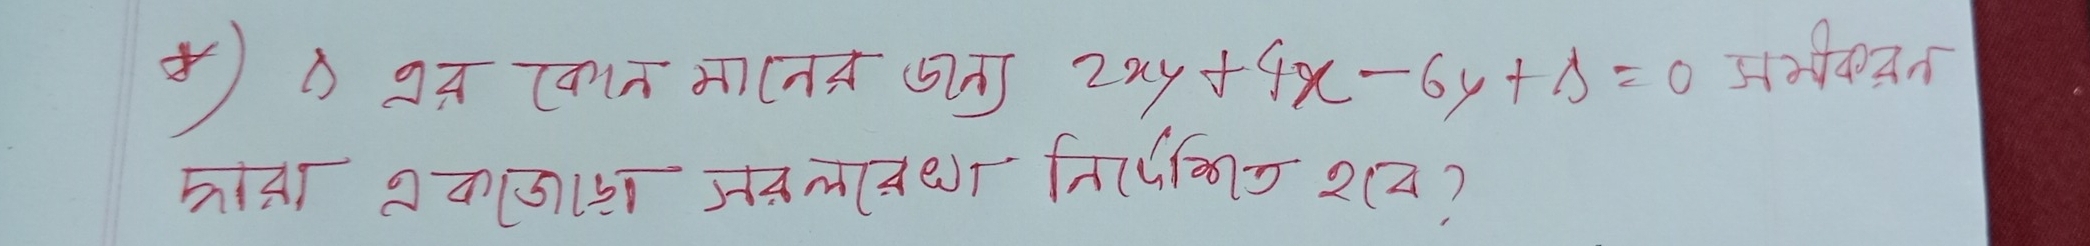 *) Δ এর কোন মানের জন্য 2xy + 4x - 6y + Δ = 0 সমীকরন
দ্বারা একজোড়া সরলরেখা নির্দেশিত হবে?